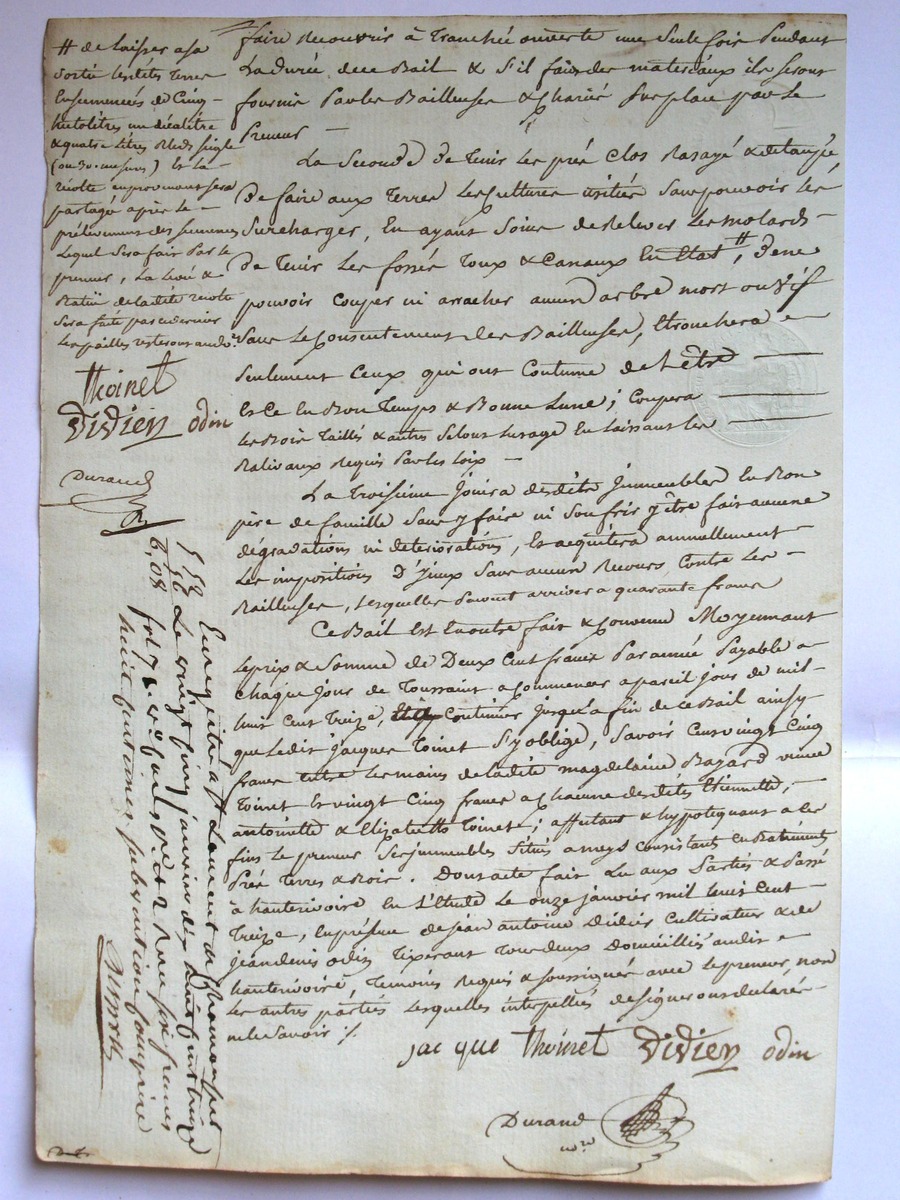 faire recouvrir à Tranchée ouverte une seule fois Pendant
La durée dece Bail & s'il faut des materiaux ils seront
fournis Par les Bailleuses & chariés sur place par Le
Preneur —
La Seconde de Tenir les prés Clos Rasayé &
de faire aux Terres Les Cultures usitées sans pouvoir les
Surcharger, En ayant Soins de Relever Les molards —
De Tenir Les fossés & Canaux En Etat #, De ne
pouvoir Couper ni arracher aucun arbre mort ou vif
Sans Le Consentement des Bailleuses, Etronchera —
Seulement Ceux qui ont Coutume de L'être —
Et Ce En Bon Temps & Bonne Lune ; Coupera —
Les Bois Taillés & autres Selon Lusage En Laissant Les —
Balivaux Requis Par les Loix —
La Troisieme Jouira desdits Jmmeubles En Bon
père de famille Sans y faire ni Souffrir y être fait aucune
dégradations ni deteriorations, Et acquitera annuellement —
Les impositions D'Jceux Sans aucun Recours Contre Les —
Bailleuses, Lesquelles Peuvent arriver a quarante francs
Ce Bail Est En outre fait & Convenu Moyennant
Le prix & Somme de Deux Cent francs Par année Payable a
Chaque Jour de Toussaint a Commencer a pareil Jour de mil
huit Cent Treize, Continuer Jusqu'a fin de ce Bail ainsy
que Ledit Jacques Toinet S'y oblige, Savoir Cent vingt Cinq
francs Entre Les mains de Ladite magdelaine Bazard veuve
Toinet Et vingt Cinq francs a Chacune desdites Etiennette, —
antoinette & Elizabeth Toinet ; affectant & hypotequant a Ces
fins Le preneur Ses Jmmeubles Situés a meys Consistants En Batiments
Prés Terres & Bois. Dont acte fait Lu aux Parties & Passé
à hauterivoire En L'Etude Le onze Janvier mil huit Cent —
Treize, En présence de Jean antoine Didier Cultivateur & de
Jean denis odin Tixerant Tous deux Domiciliés audit —
hauterivoire, Temoins Requis & Soussignés avec Le preneur, non
Les autres parties Lesquelles interpellées designer ont declaré —
ne le Savoir ·/.
jacque thoinet DiDier odin
Durand
nre
# de Laisser a sa
Sortie Lesdites Terres
Ensemencées de Cinq —
hectolitres un décalitre
& quatre Litres Bleds Seigle
(ou 30. mesures) Et La —
récolte en provenant Sera
partagé après Le —
prélevement des Semences
Lequel Sera fait Par Le
preneur, La &
Battü de Ladite récolte
Sera faite par ce dernier
Les pailles resteront au do.
thoinet
DiDier odin
Durand
Enregistré a St Laurent de Chamousset
Le vingt Cinq janvier dix huit Cent treize
six francs
huit Centimes subvention Comprise
5,58
6,08